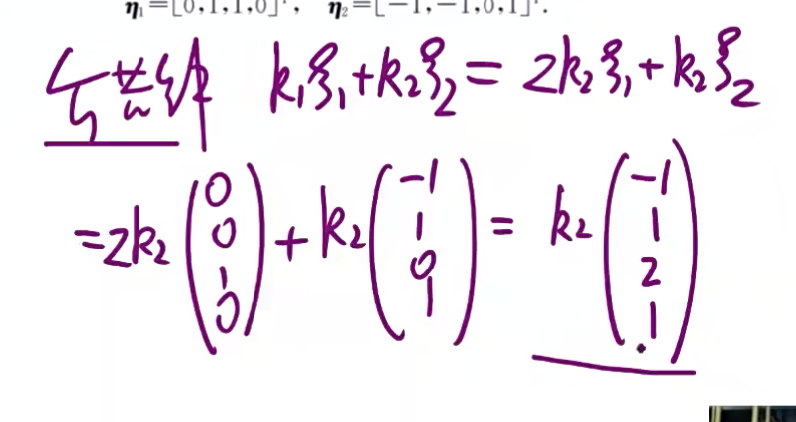 η₁=[0,1,1,0]ᵀ, η₂=[−1,−1,0,1]ᵀ.
公共解 k₁ξ₁+k₂ξ₂=2k₂ξ₁+k₂ξ₂
=2k₂(0 0 1 0)+k₂(−1 1 0 1)=k₂(−1 1 2 1)